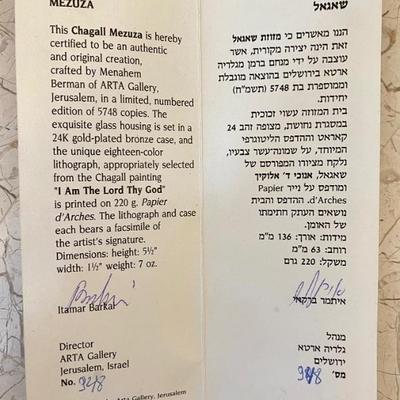 MEZUZA
This Chagall Mezuza is hereby
certified to be an authentic
and original creation,
crafted by Menahem
Berman of ARTA Gallery,
Jerusalem, in a limited, numbered
edition of 5748 copies. The
exquisite glass housing is set in a
24K gold-plated bronze case, and
the unique eighteen-color
lithograph, appropriately selected
from the Chagall painting
"I Am The Lord Thy God"
is printed on 220 g. Papier
d'Arches. The lithograph and case
each bears a facsimile of
the artist's signature.
Dimensions: height: 5½"
width: 1½" weight: 7 oz.
Itamar Barkai
Director
ARTA Gallery
Jerusalem, Israel
No. 3248
Arta Gallery, Jerusalem
שאגאל
הננו מאשרים כי מזוזת שאגאל
זאת הינה יצירה מקורית, אשר
עוצבה על ידי מנחם ברמן מגלריה
ארטא בירושלים בהוצאה מוגבלת
וממוספרת בת 5748 (תשמ"ח)
יחידות.
בית המזוזה עשוי זכוכית
במסגרת נחושת, מצופה זהב 24
קאראט וההדפס הליטוגרפי
המיוחד, על שמונה־עשר צבעיו,
נלקח מציורו המפורסם של
שאגאל, אנוכי ד' אלוקיך
ומודפס על נייר Papier
d'Arches. ההדפס והבית
נושאים העתק חתימתו
של האומן.
מידות: אורך: 136 מ"מ
רוחב: 63 מ"מ
משקל: 220 גרם
איתמר ברקאי
מנהל
גלריה ארטא
ירושלים
מס' 3248